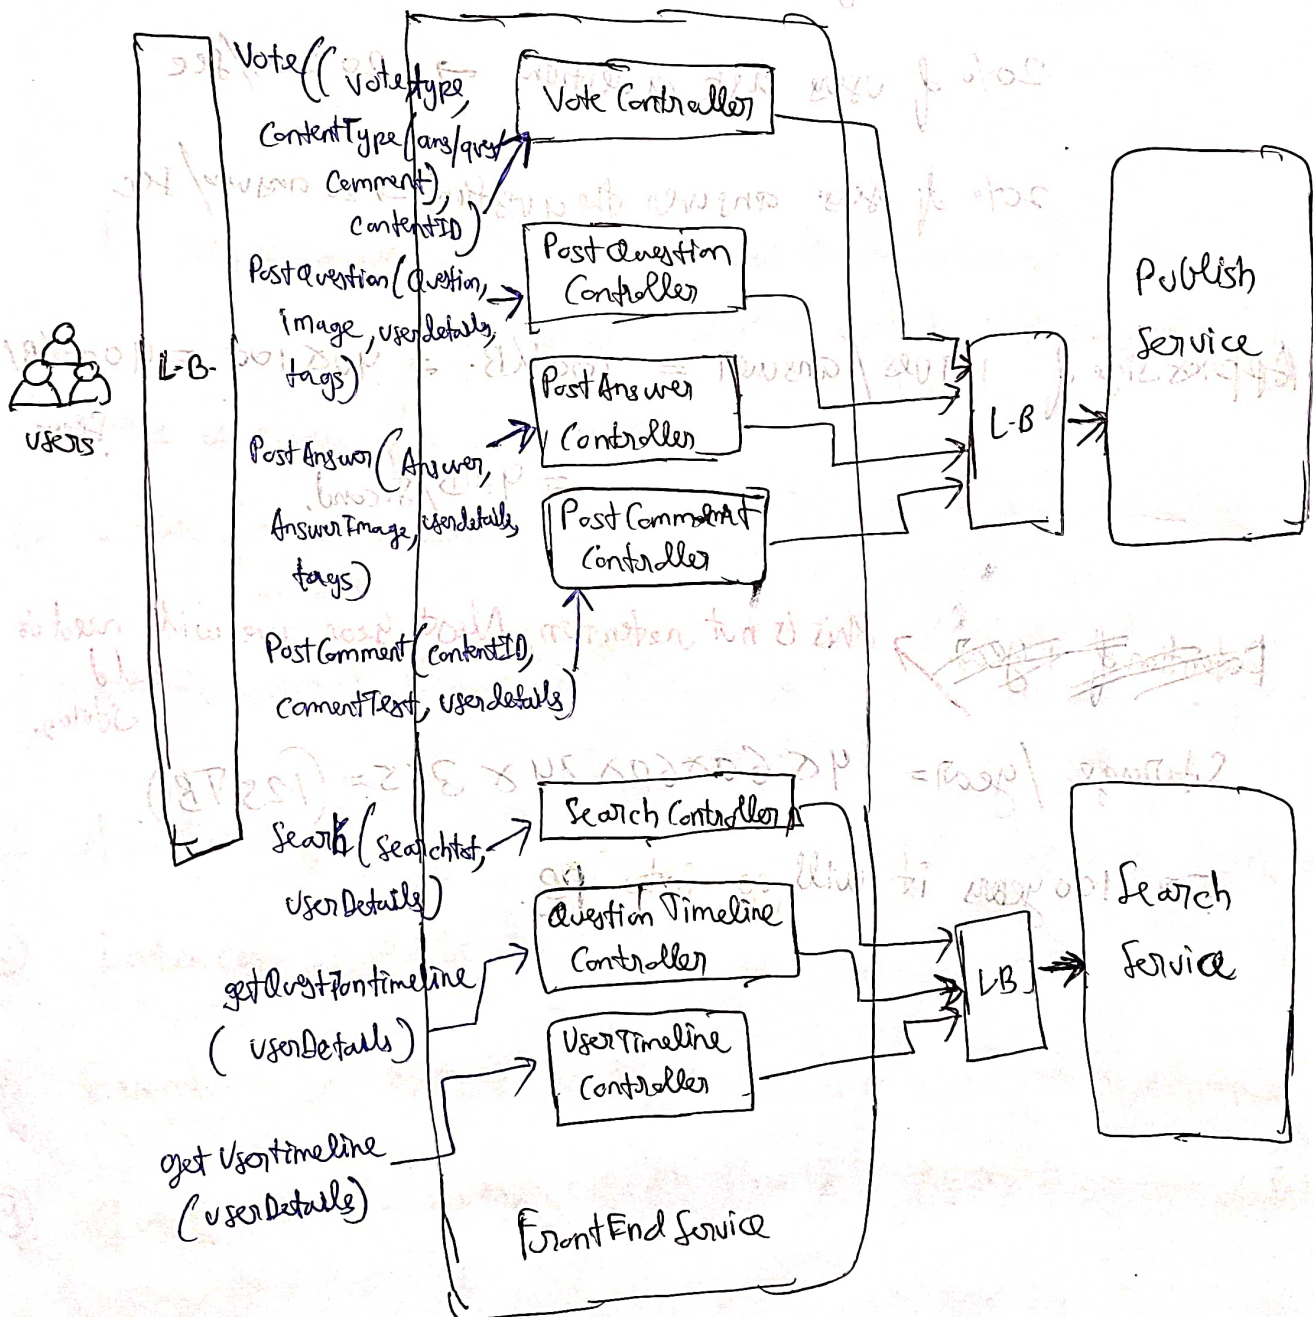 Vote((votetype,
ContentType(ans/ques/
Comment),
contentID)
PostQuestion(Question,
image, userdetails,
tags)
PostAnswer(Answer,
AnswerImage, userdetails,
tags)
PostComment(contentID,
comentText, userdetails)
Search(searchtxt,
userDetails)
getQuestiontimeline
(userDetails)
get Usertimeline
(userDetails)
users
L-B-
Vote Controller
Post Question
Controller
Post Answer
Controller
Post Comment
Controller
Search Controller
Question Timeline
Controller
User Timeline
Controller
FrontEnd Service
L-B
Publish
Service
LB
Search
Service